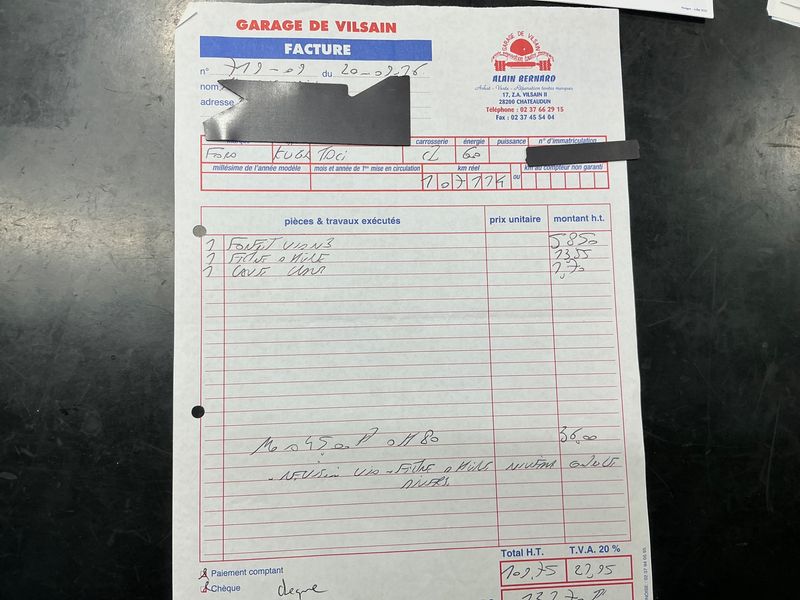 GARAGE DE VILSAIN
FACTURE
n° 719-09 du 20-09-16
nom
adresse
GARAGE DE VILSAIN
ALAIN BERNARD
Achat - Vente - Réparation toutes marques
17, Z.A. VILSAIN II
28200 CHATEAUDUN
Téléphone : 02 37 66 29 15
Fax : 02 37 45 54 04
carrosserie énergie puissance n° d'immatriculation
FORD KUGA TDCi CI GO
millésime de l'année modèle mois et année de 1re mise en circulation km réel ou km au compteur non garanti
107114
pièces & travaux exécutés prix unitaire montant h.t.
1 58,50
1 FILTRE A HUILE 13,55
1 1,70
MO 45,00 0H80 36,00
FILTRE A HUILE NIVEAUX
DIVERS
Total H.T. T.V.A. 20 %
109,75 21,95
Paiement comptant
Chèque